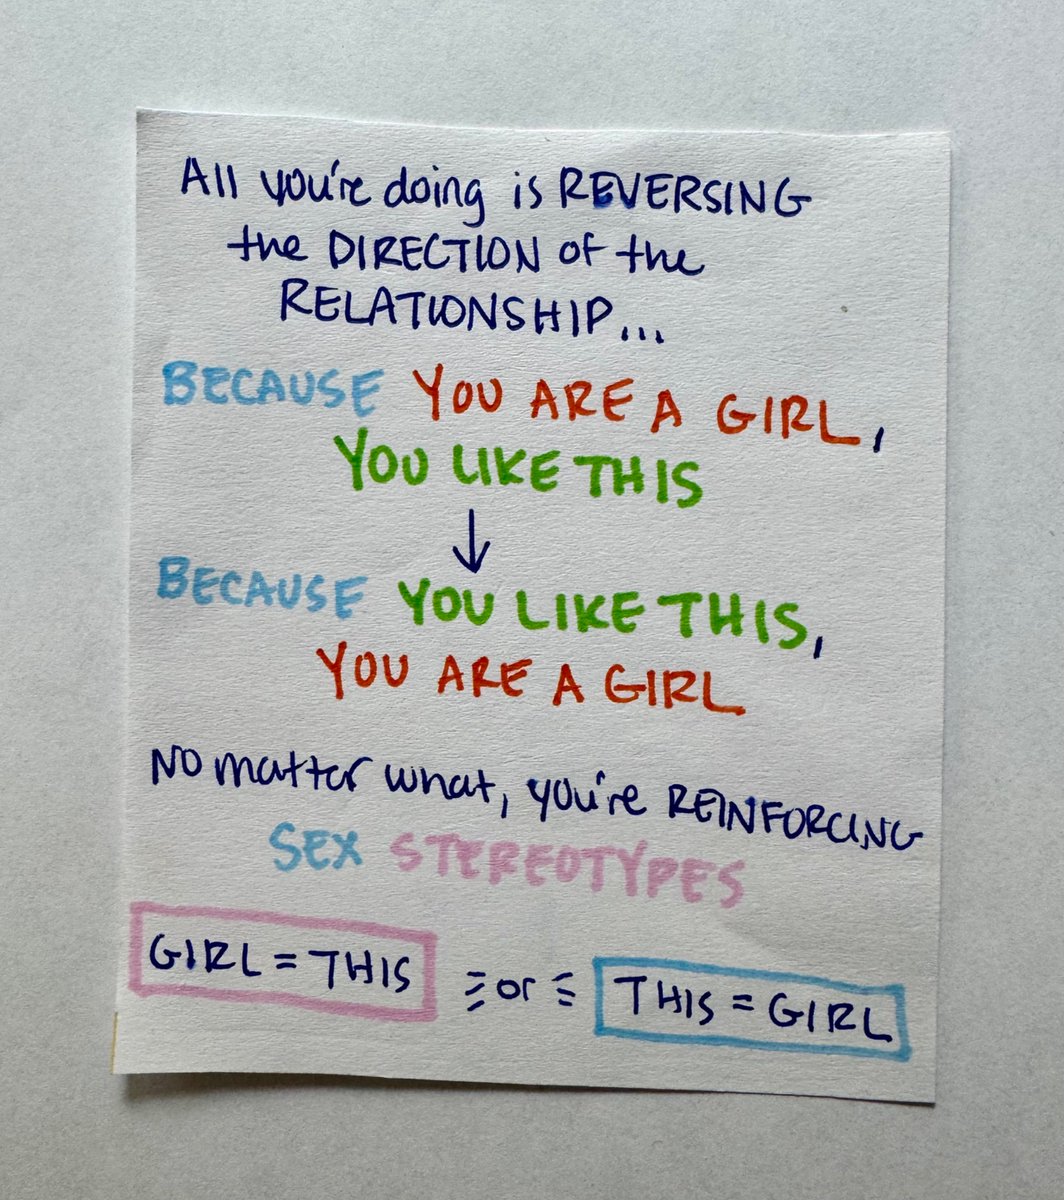 All you're doing is REVERSING
the DIRECTION of the
RELATIONSHIP...
BECAUSE YOU ARE A GIRL,
YOU LIKE THIS
↓
BECAUSE YOU LIKE THIS,
YOU ARE A GIRL
No matter what, you're REINFORCING
SEX STEREOTYPES
GIRL = THIS or THIS = GIRL